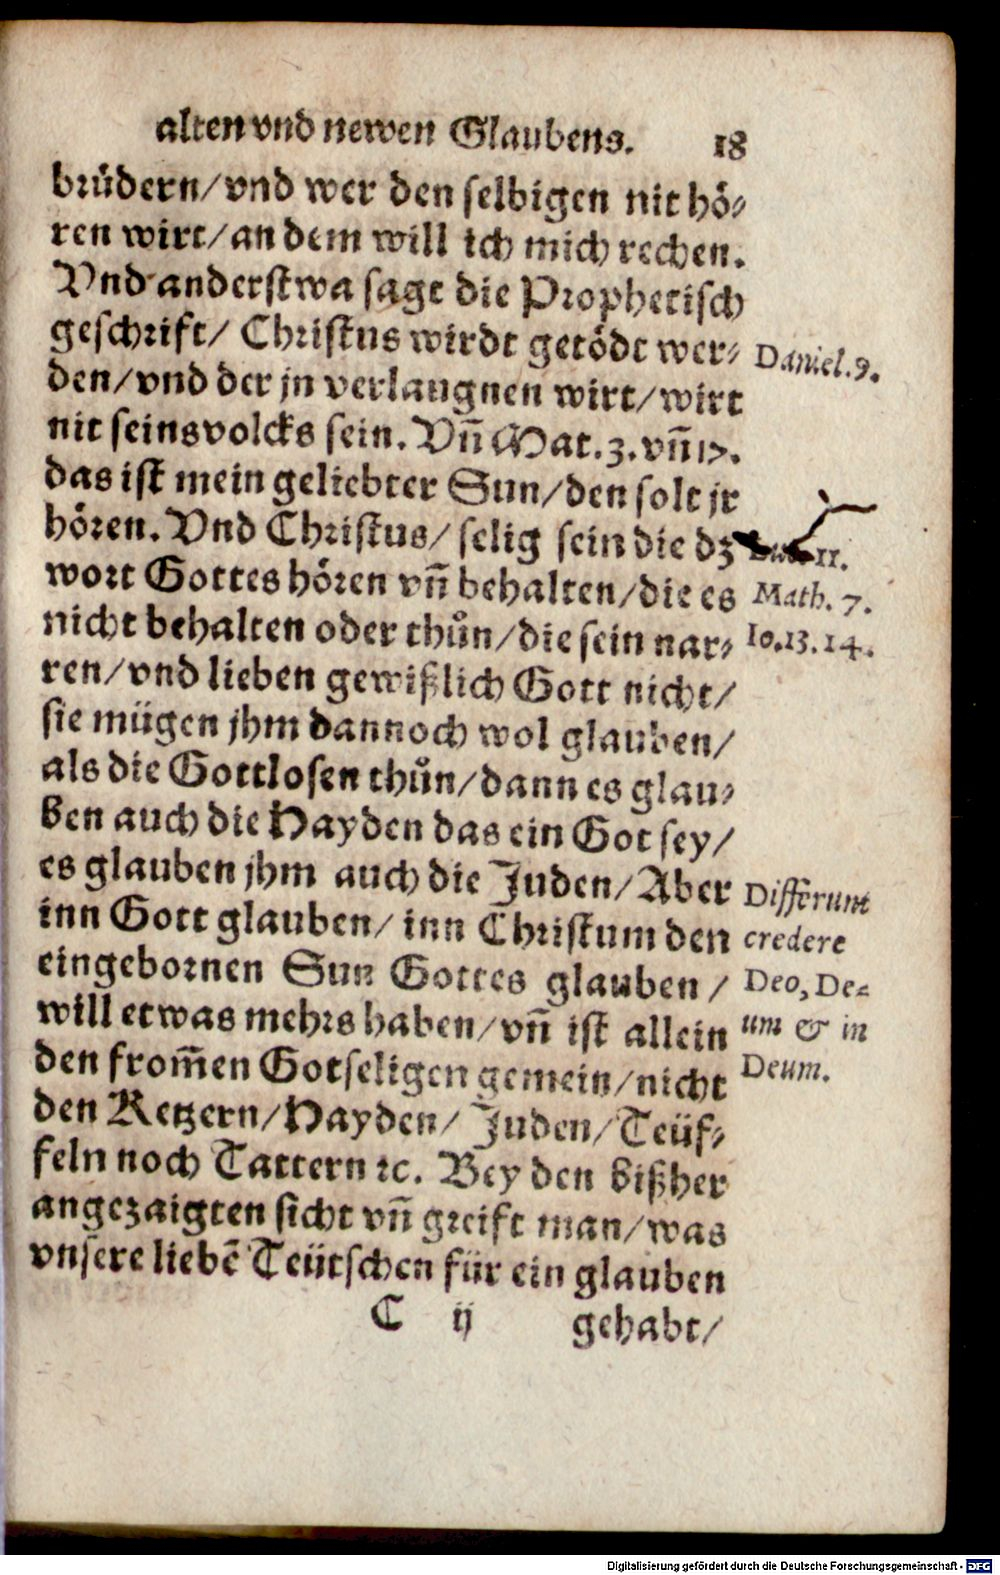 alten vnd newen Glaubens. 18
brüdern/vnd wer den selbigen nit hö⸗
ren wirt/an dem will ich mich rechen.
Vnd anderstwa sagt die Prophetisch
geschrift/ Christus wirdt getödt wer⸗
Daniel.9.
den/vnd der jn verlaugnen wirt/wirt
nit seins volcks sein. Vñ Mat.3.vñ 17.
das ist mein geliebter Sun/den solt jr
hören. Vnd Christus/ selig sein die dz
11.
wort Gottes hören vñ behalten/die es
Math. 7.
nicht behalten oder thůn/die sein nar⸗
Io.13.14.
ren/vnd lieben gewißlich Gott nicht/
sie mügen jhm dannoch wol glauben/
als die Gottlosen thůn/dann es glau⸗
ben auch die Hayden das ein Got sey/
es glauben jhm auch die Juden/Aber
inn Gott glauben/ inn Christum den
eingebornen Sun Gottes glauben /
will etwas mehrs haben/vñ ist allein
Differunt
credere
Deo, De⸗
um & in
Deum.
den from̃en Gotseligen gemein/nicht
den Ketzern/Hayden/ Juden/Teüf⸗
feln noch Tattern ꝛc. Bey den bißher
angezaigten sicht vñ greift man/was
vnsere liebẽ Teütschen für ein glauben
C ij gehabt/
Digitalisierung gefördert durch die Deutsche Forschungsgemeinschaft - DFG